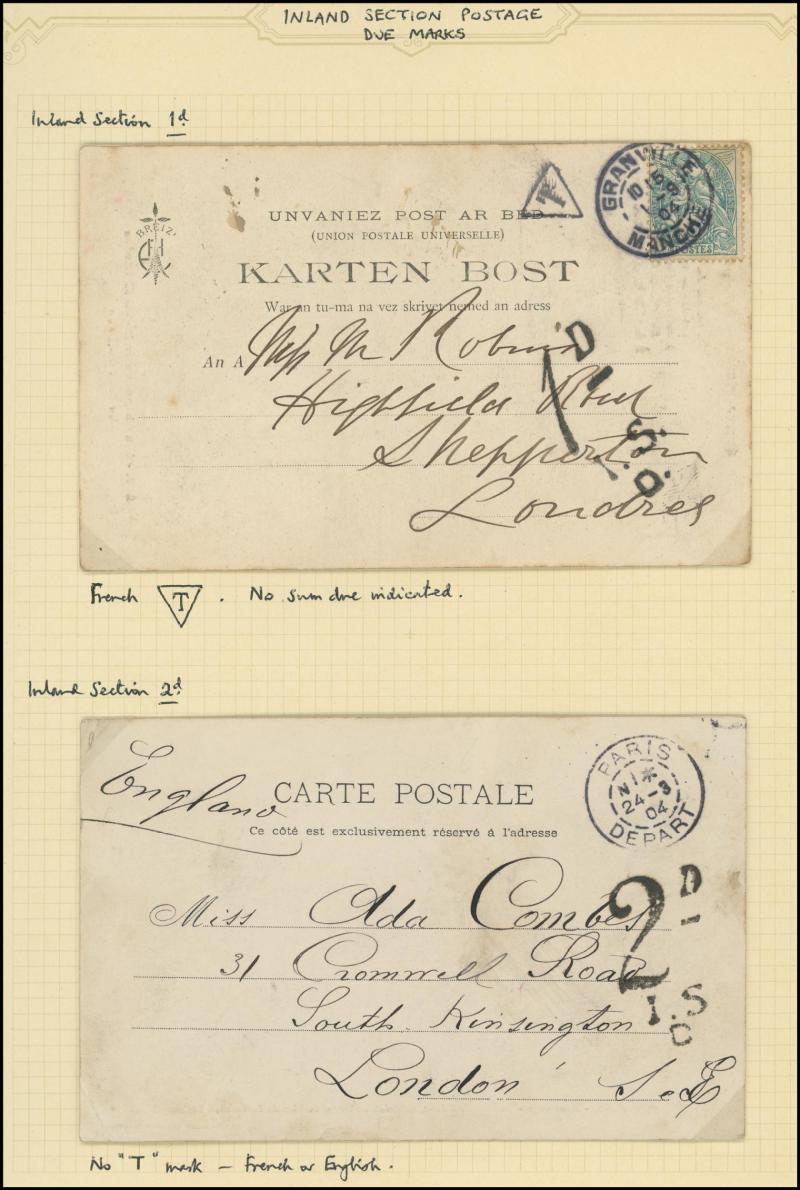 INLAND SECTION POSTAGE
DUE MARKS
Inland Section 1d
BREIZ
UNVANIEZ POST AR BED
(UNION POSTALE UNIVERSELLE)
KARTEN BOST
War an tu-ma na vez skrivet nemed an adress
T
GRANVILLE
04
MANCHE
POSTES
An A
Miss M Robins
Highfield Road
Shepperton
Londres
1 D
I.S.
O.
French T . No sum due indicated.
Inland Section 2d
England
CARTE POSTALE
Ce côté est exclusivement réservé à l'adresse
PARIS
24 - 3
04
DEPART
Miss Ada Combes
31 Cromwell Road
South Kinsington
London S.E
2 D
I.S
O
No "T" mark – French or English.